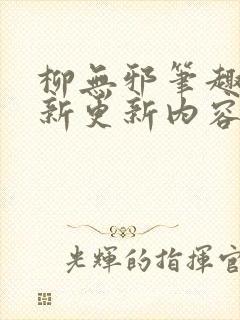 柳無邪筆趣
新更新內容
光輝的指揮官